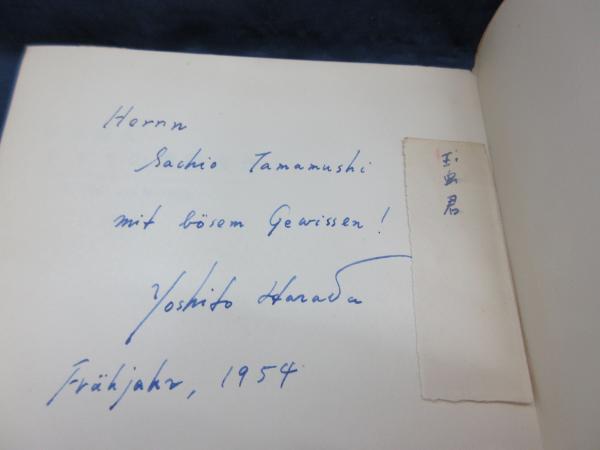 Herrn
Sachio Tamamushi
mit bösem Gewissen!
Yoshito Harada
Frühjahr, 1954
玉虫君